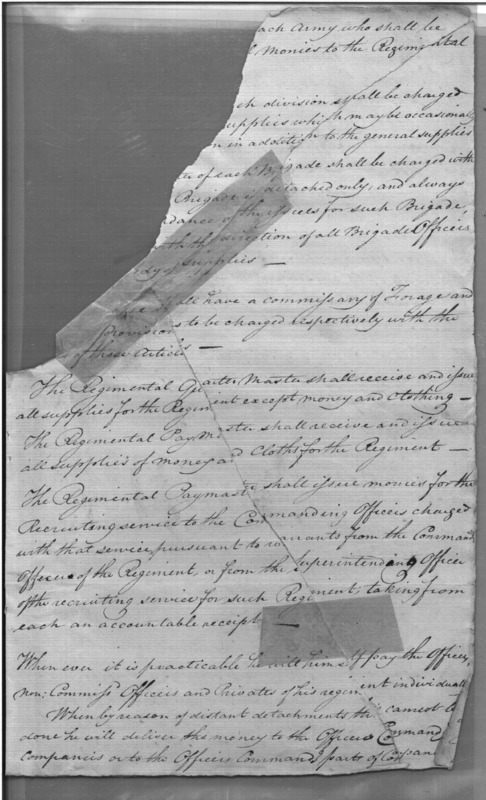 ach Army who shall be
Monies to the Regimental
ch division shall be charged
supplies which may be occasional
n in addition to the general supplies
er of each Brigade shall be charged with
Brigade is detached only, and always
dance of the issues for such Brigade,
the direction of all Brigade Officers
supplies —
shall have a commissary of Forage and
provisions to be charged respectively with the
of these Articles —
The Regimental Quarter Master shall receive and issue
all supplies for the Regiment except money and Clothing —
The Regimental Paymaster shall receive and issue
all supplies of money and Cloths for the Regiment —
The Regimental Paymaster shall issue monies for the
Recruiting service to the Commanding Officers charged
with that service pursuant to warrants from the Command
Officer of the Regiment, or from the Superintendang Officer
of the recruiting service for such Regiment, taking from
each an accountable receipt —
When ever it is practicable he will himself pay the Officers,
non; Commiss Officers and Privates of his regiment individuall
When by reason of distant detachments this cannot be
done he will deliver the money to the Officers Command
companies or to the Officers Command parts of Compan